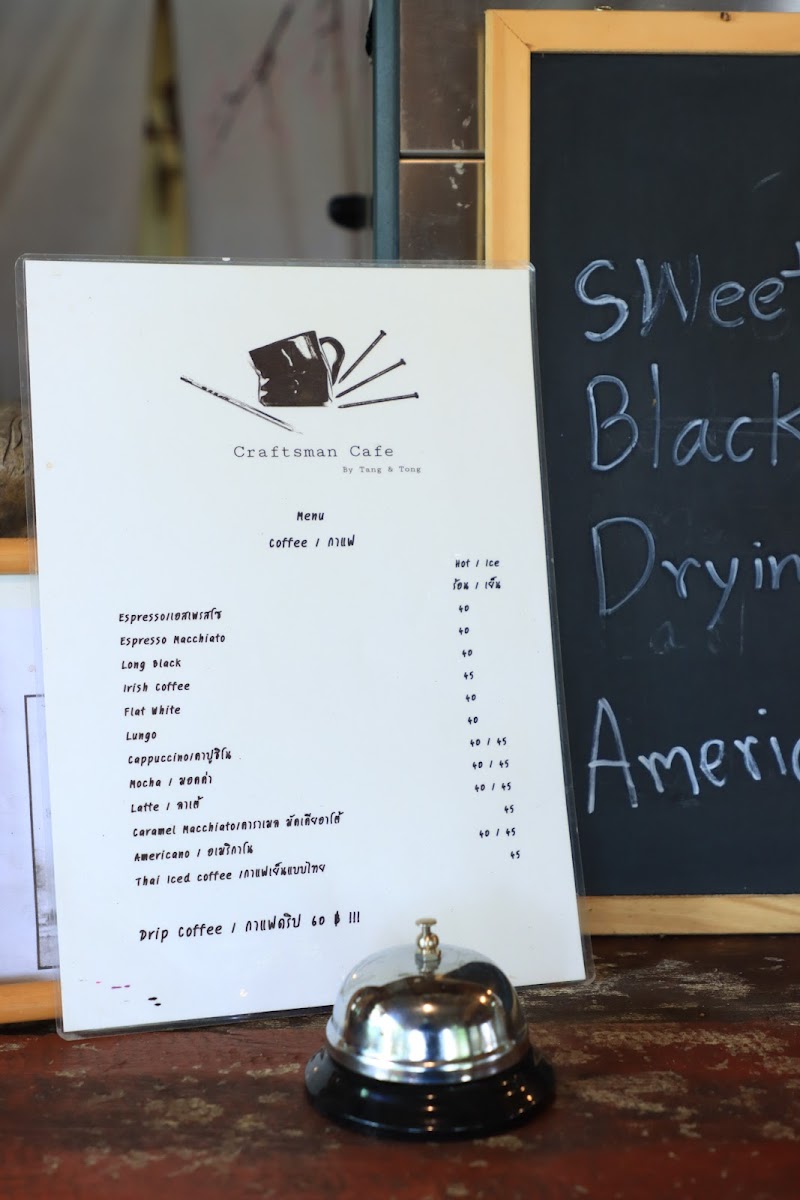 Craftsman Cafe
By Tang & Tong
Menu
Coffee / กาแฟ
Hot / Ice
ร้อน / เย็น
Espresso/เอสเพรสโซ 40
Espresso Macchiato 40
Long Black 40
Irish Coffee 45
Flat White 40
Lungo 40
Cappuccino/คาปูชิโน 40 / 45
Mocha / มอคค่า 40 / 45
Latte / ลาเต้ 40 / 45
Caramel Macchiato/คาราเมล มัคเคียอาโต้ 45
Americano / อเมริกาโน 40 / 45
Thai Iced coffee /กาแฟเย็นแบบไทย 45
Drip Coffee / กาแฟดริป 60 ฿ !!!
Sweet
Black
Dryin
Americ